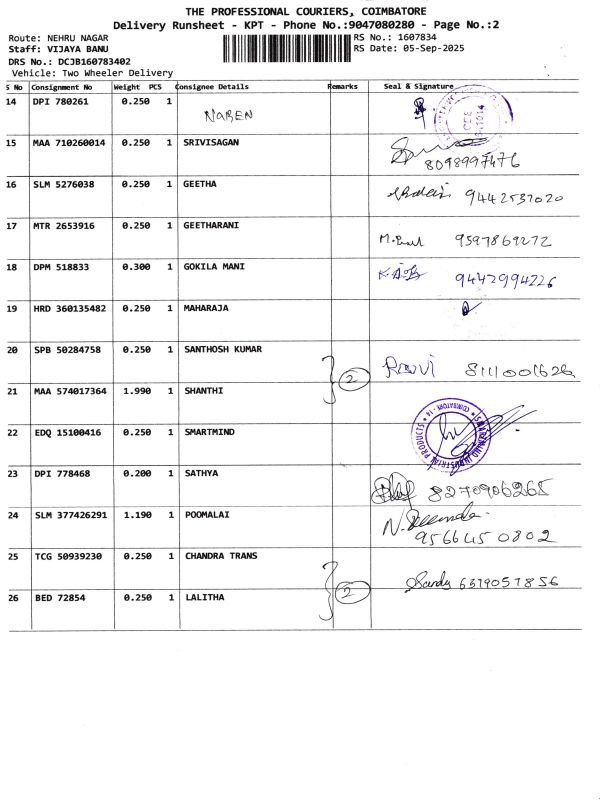 THE PROFESSIONAL COURIERS, COIMBATORE
Delivery Runsheet - KPT - Phone No.:9047080280 - Page No.:2
Route: NEHRU NAGAR RS No.: 1607834
Staff: VIJAYA BANU RS Date: 05-Sep-2025
DRS No.: DCJB160783402
Vehicle: Two Wheeler Delivery
S No Consignment No Weight PCS Consignee Details Remarks Seal & Signature
14 DPI 780261 0.250 1 NAREN
15 MAA 710260014 0.250 1 SRIVISAGAN 8098997476
16 SLM 5276038 0.250 1 GEETHA 9442537020
17 MTR 2653916 0.250 1 GEETHARANI 9597869272
18 DPM 518833 0.300 1 GOKILA MANI 9442994226
19 HRD 360135482 0.250 1 MAHARAJA
20 SPB 50284758 0.250 1 SANTHOSH KUMAR
2 Ravi 8111001626
21 MAA 574017364 1.990 1 SHANTHI
22 EDQ 15100416 0.250 1 SMARTMIND
23 DPI 778468 0.200 1 SATHYA 8270906265
24 SLM 377426291 1.190 1 POOMALAI 9566450802
25 TCG 50939230 0.250 1 CHANDRA TRANS
2 Sandy 6379057856
26 BED 72854 0.250 1 LALITHA